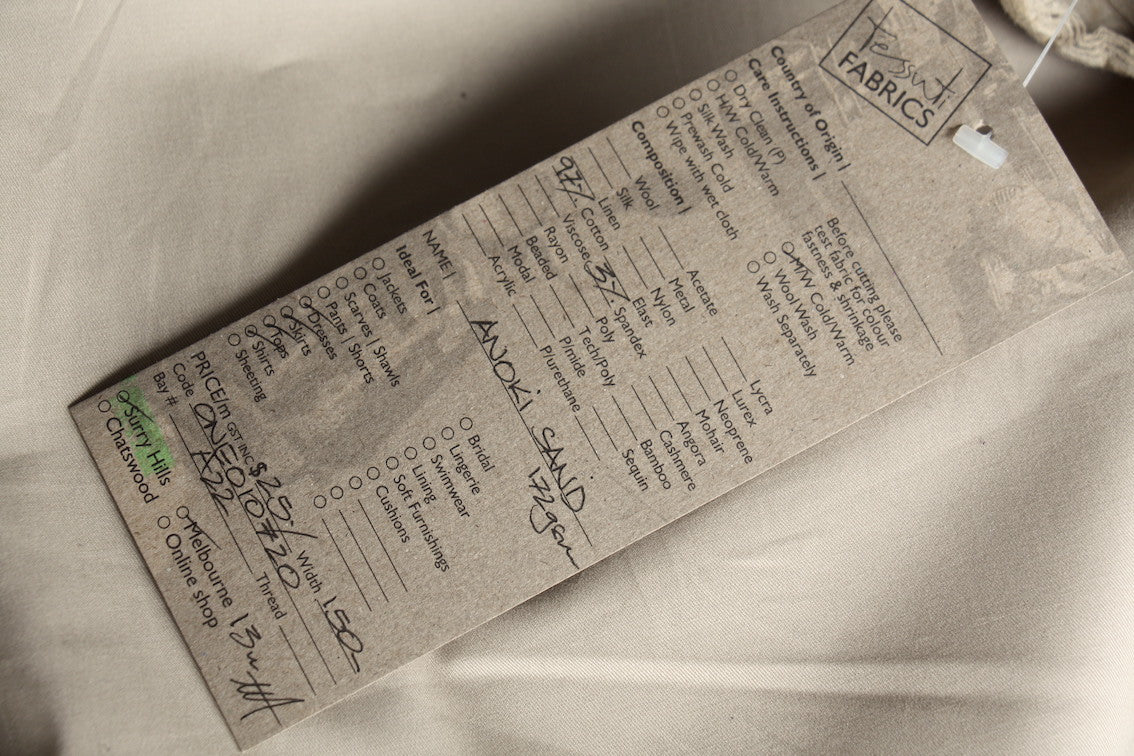 Tessuti
FABRICS
Country of Origin |
Care Instructions |
Dry Clean (P)
H/W Cold/Warm
Silk Wash
Prewash Cold
Wipe with wet cloth
Before cutting please
test fabric for colour
fastness & shrinkage
H/W Cold/Warm
Wool Wash
Wash Separately
Composition |
Wool
Silk
Linen
97% Cotton
Viscose
Rayon
Beaded
Modal
Acrylic
Acetate
Metal
Nylon
Elast
3% Spandex
Poly
Tech/Poly
P/mide
P/urethane
Lycra
Lurex
Neoprene
Mohair
Angora
Cashmere
Bamboo
Sequin
NAME | ANOKI SAND
172gsm
Ideal For |
Jackets
Coats
Scarves | Shawls
Pants | Shorts
Dresses
Skirts
Tops
Shirts
Sheeting
Bridal
Lingerie
Swimwear
Lining
Soft Furnishings
Cushions
PRICE/m GST INC $25./ Width 150-
Code ONE010#20
Bay # A22 Thread
Surry Hills
Chatswood
Melbourne 13m
Online shop